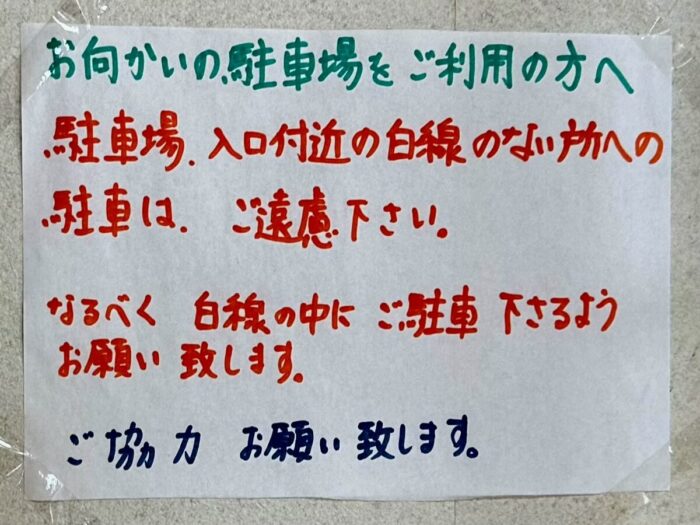 お向かいの駐車場をご利用の方へ
駐車場、入口付近の白線のない所への
駐車は、ご遠慮下さい。
なるべく 白線の中に ご駐車 下さるよう
お願い 致します。
ご協力 お願い 致します。